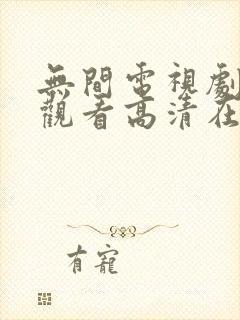 無間電視劇
觀看高清在
有寵